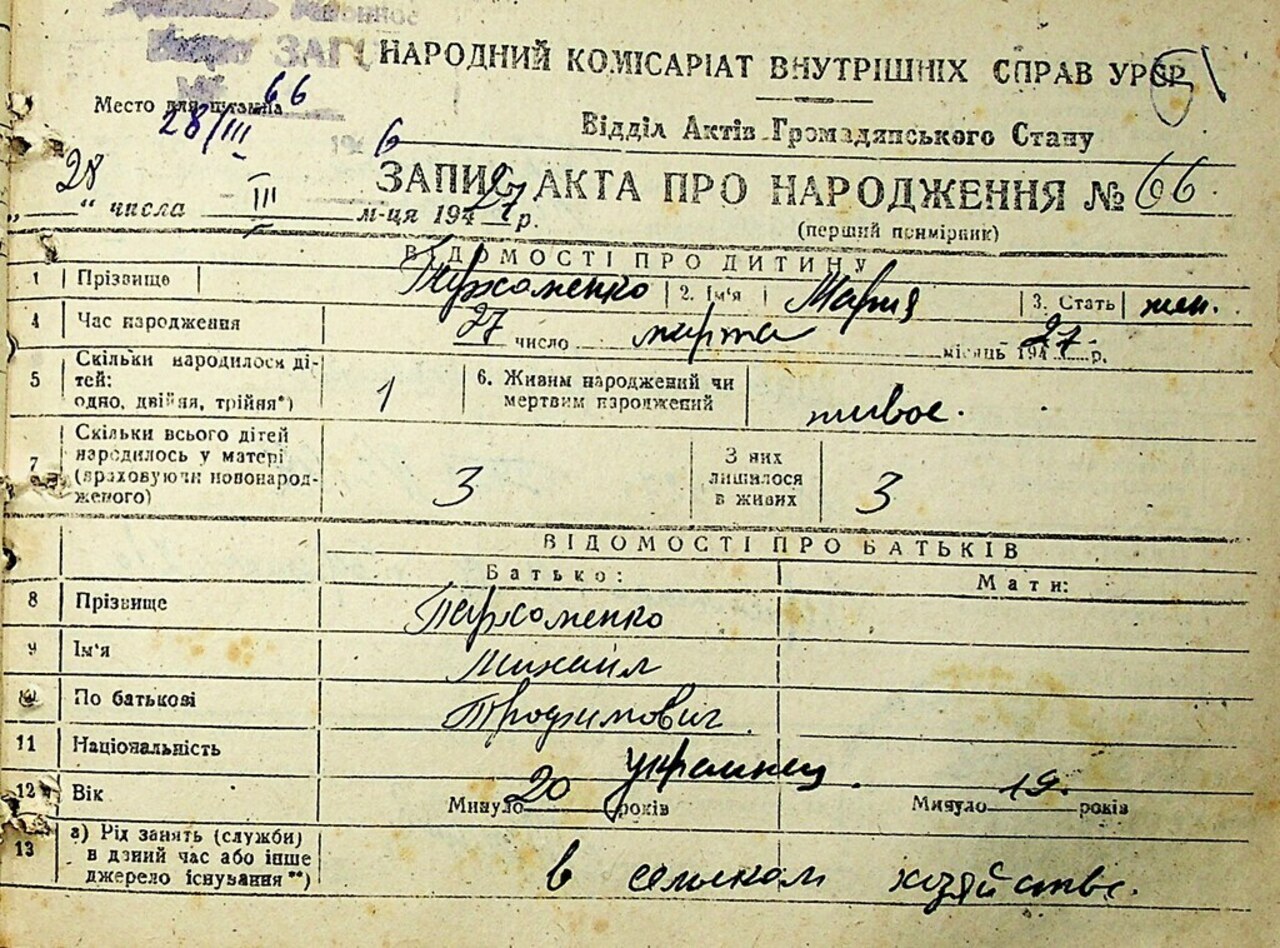 ЗАГС
НАРОДНИЙ КОМІСАРІАТ ВНУТРІШНІХ СПРАВ УРСР
Место для штампа 66
28/III
194 6
Відділ Актів Громадянського Стану
ЗАПИС АКТА ПРО НАРОДЖЕННЯ № 66
(перший примірник)
„28“ числа III м-ця 194 27 р.
ВІДОМОСТІ ПРО ДИТИНУ
1 Прізвище Пархоменко 2. Ім'я Мария 3. Стать жен.
4 Час народження 27 число марта місяць 194 27 р.
5 Скільки народилося ді-
тей:
одно, двійня, трійня*) 1 6. Живим народжений чи
мертвим народжений живое.
7 Скільки всього дітей
народилось у матері
(враховуючи новонарод-
женого) 3 З них
лишилося
в живих 3
ВІДОМОСТІ ПРО БАТЬКІВ
Батько: Мати:
8 Прізвище Пархоменко
9 Ім'я Михаил
10 По батькові Трофимович
11 Національність украинец
12 Вік Минуло 20 років Минуло 19. років
13 а) Рід занять (служби)
в даний час або інше
джерело існування**) в сельском хозяйстве.